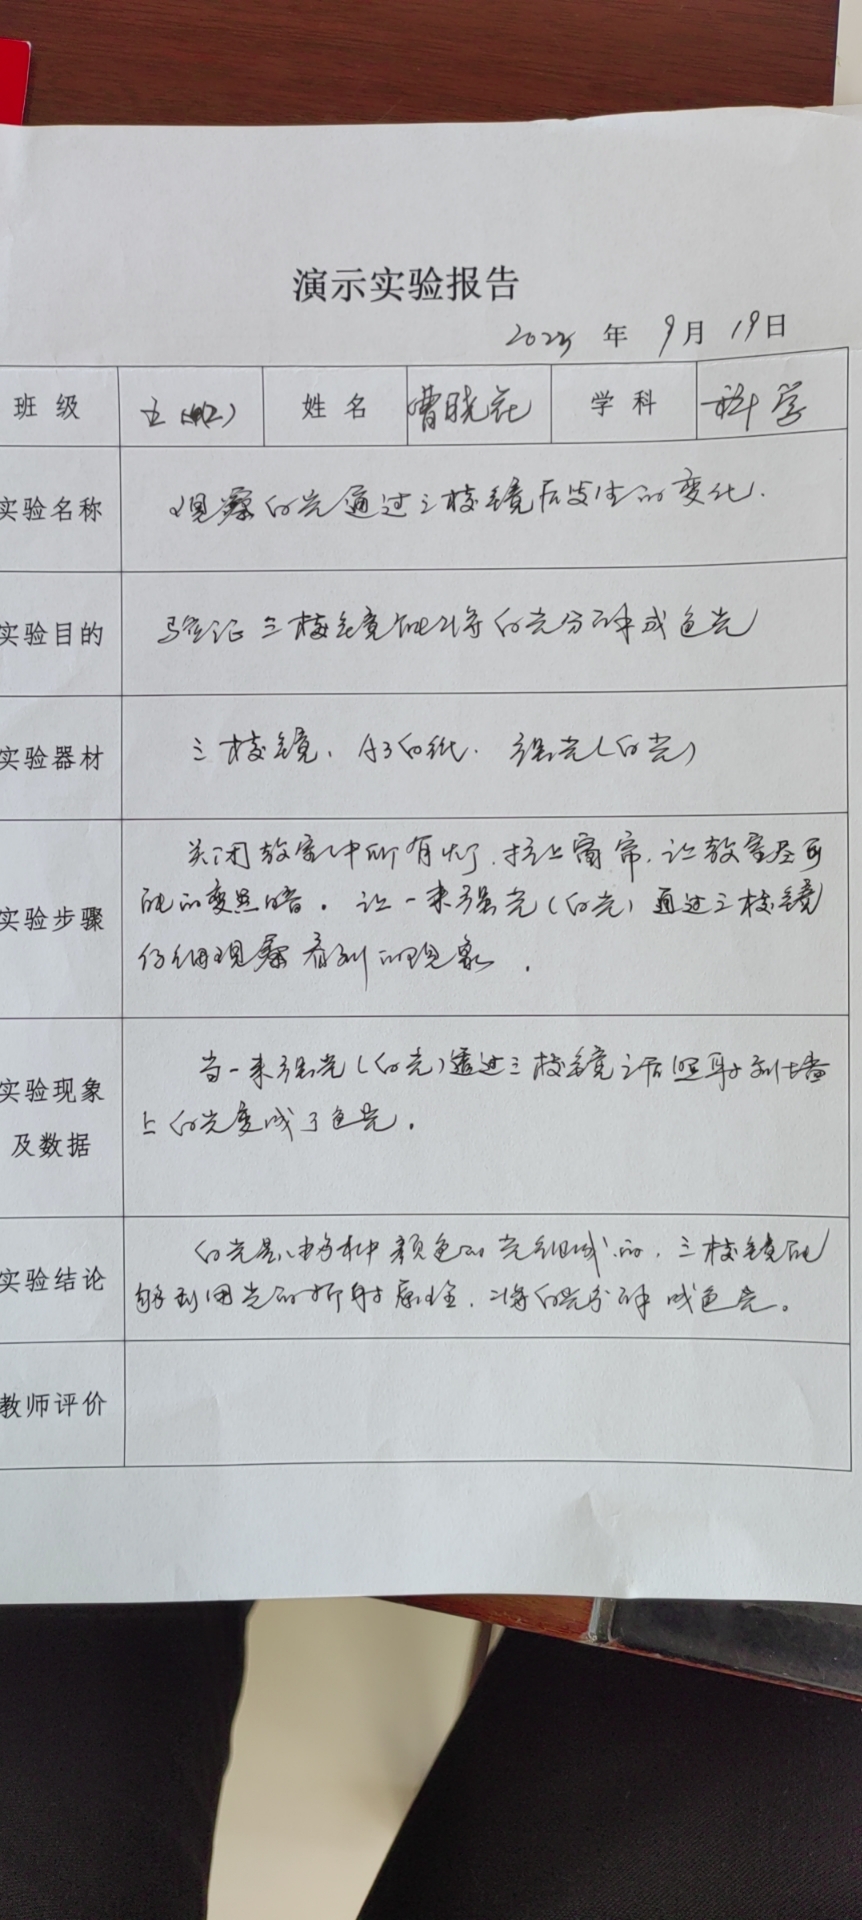 演示实验报告
年 9月 19日
班级 五 姓名 曹晓花 学科 科学
实验名称 观察白光通过三棱镜后发生的变化.
实验目的 验证三棱镜能将白光分解成色光
实验器材 三棱镜、A3白纸. 强光(白光)
关闭教室中所有灯,拉上窗帘,让教室尽可
实验步骤 能的变黑暗。让一束强光(白光)通过三棱镜
仔细观察看到的现象.
当一束强光(白光)透过三棱镜之后照射到墙
实验现象
上白光变成了色光.
及数据
白光是由多种颜色的光组成的,三棱镜能
实验结论
够利用光的折射原理,将白光分解成色光。
教师评价